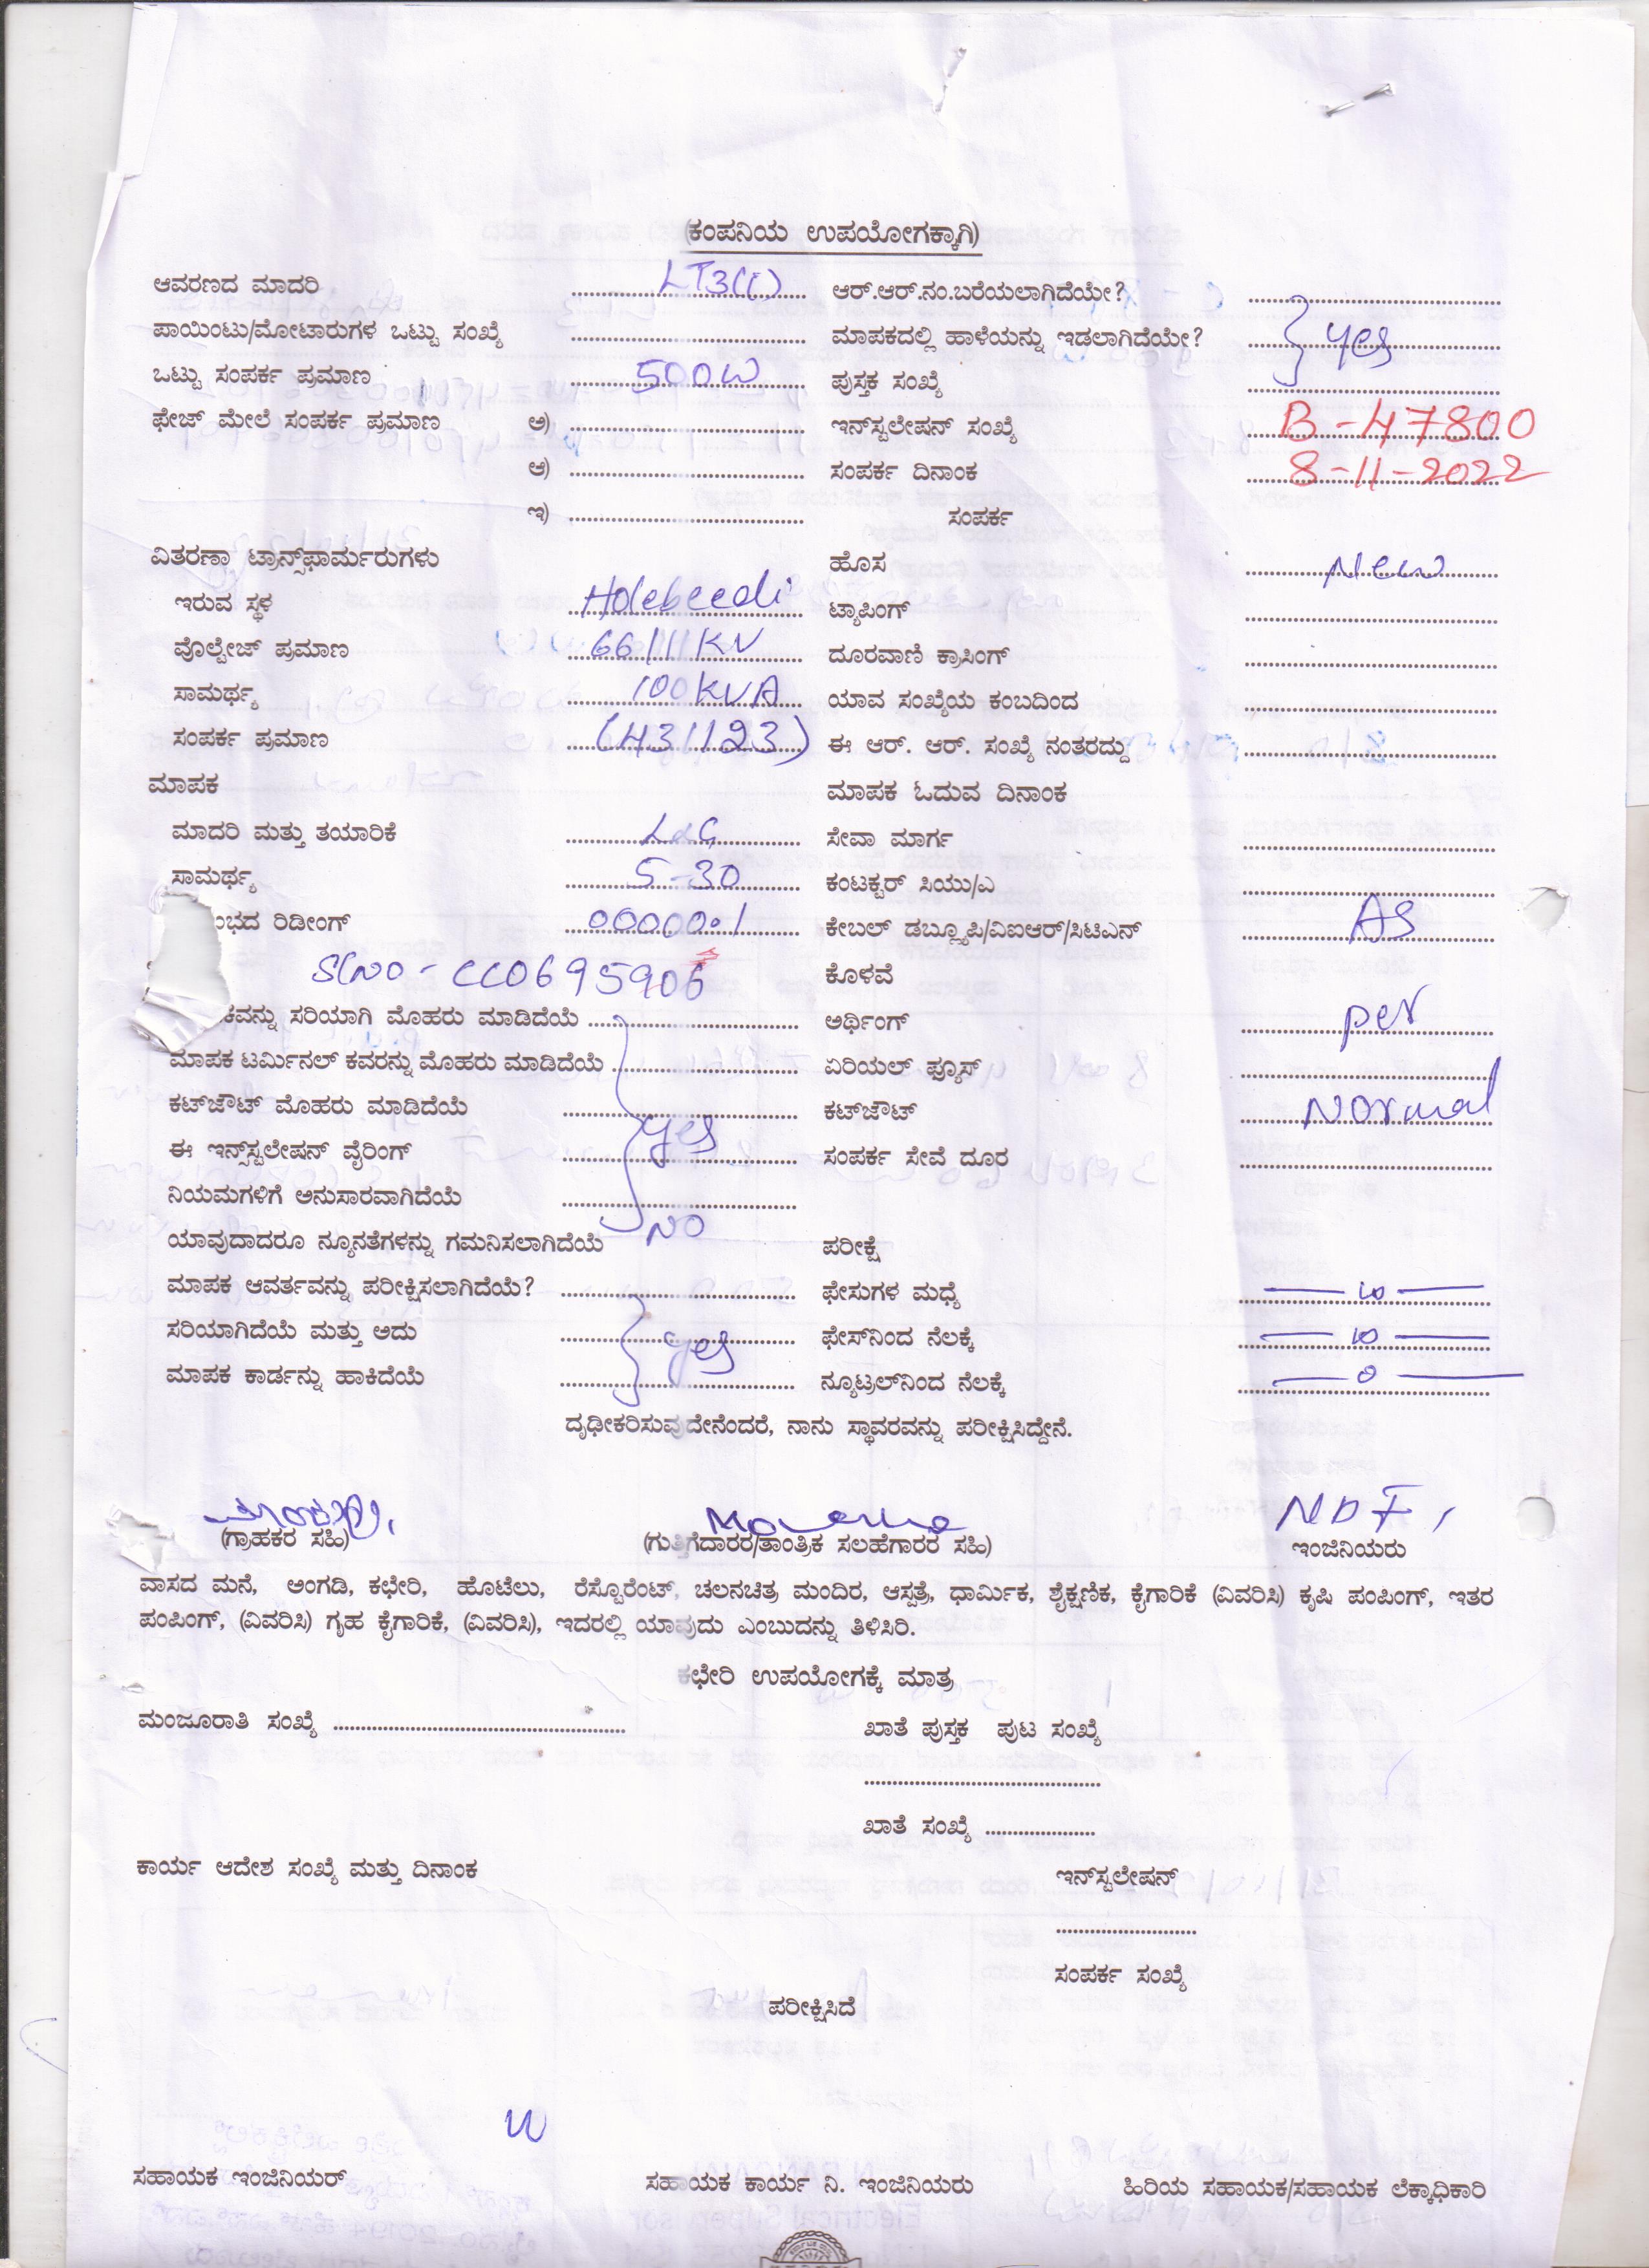 (ಕಂಪನಿಯ ಉಪಯೋಗಕ್ಕಾಗಿ)
ಆವರಣದ ಮಾದರಿ LT3(i) ಆರ್.ಆರ್.ನಂ.ಬರೆಯಲಾಗಿದೆಯೇ?
ಪಾಯಿಂಟು/ಮೋಟಾರುಗಳ ಒಟ್ಟು ಸಂಖ್ಯೆ ಮಾಪಕದಲ್ಲಿ ಹಾಳೆಯನ್ನು ಇಡಲಾಗಿದೆಯೇ? } yes
ಒಟ್ಟು ಸಂಪರ್ಕ ಪ್ರಮಾಣ 500W ಪುಸ್ತಕ ಸಂಖ್ಯೆ
ಫೇಜ್ ಮೇಲೆ ಸಂಪರ್ಕ ಪ್ರಮಾಣ ಅ) ಇನ್‌ಸ್ಟಲೇಷನ್ ಸಂಖ್ಯೆ B-47800
ಆ) ಸಂಪರ್ಕ ದಿನಾಂಕ 8-11-2022
ಇ) ಸಂಪರ್ಕ
ವಿತರಣಾ ಟ್ರಾನ್ಸ್‌ಫಾರ್ಮರುಗಳು ಹೊಸ New
ಇರುವ ಸ್ಥಳ Holebeedi ಟ್ಯಾಪಿಂಗ್
ವೊಲ್ಟೇಜ್ ಪ್ರಮಾಣ 66/11KV ದೂರವಾಣಿ ಕ್ರಾಸಿಂಗ್
ಸಾಮರ್ಥ್ಯ 100KVA ಯಾವ ಸಂಖ್ಯೆಯ ಕಂಬದಿಂದ
ಸಂಪರ್ಕ ಪ್ರಮಾಣ (431123) ಈ ಆರ್. ಆರ್. ಸಂಖ್ಯೆ ನಂತರದ್ದು
ಮಾಪಕ ಮಾಪಕ ಓದುವ ದಿನಾಂಕ
ಮಾದರಿ ಮತ್ತು ತಯಾರಿಕೆ L&G ಸೇವಾ ಮಾರ್ಗ
ಸಾಮರ್ಥ್ಯ 5-30 ಕಂಟಕ್ಟರ್ ಸಿಯು/ಎ
ಂಭದ ರಿಡೀಂಗ್ 000000.1 ಕೇಬಲ್ ಡಬ್ಲ್ಯೂಪಿ/ವಿಐಆರ್/ಸಿಟಿಎನ್ AS
SlNO - CC0695906 ಕೊಳವೆ
ಕವನ್ನು ಸರಿಯಾಗಿ ಮೊಹರು ಮಾಡಿದೆಯೆ ಅರ್ಥಿಂಗ್ per
ಮಾಪಕ ಟರ್ಮಿನಲ್ ಕವರನ್ನು ಮೊಹರು ಮಾಡಿದೆಯೆ ಏರಿಯಲ್ ಫ್ಯೂಸ್
ಕಟ್‌ಜೌಟ್ ಮೊಹರು ಮಾಡಿದೆಯೆ } yes ಕಟ್‌ಜೌಟ್ Normal
ಈ ಇನ್ಸ್‌ಸ್ಟಲೇಷನ್ ವೈರಿಂಗ್ ಸಂಪರ್ಕ ಸೇವೆ ದೂರ
ನಿಯಮಗಳಿಗೆ ಅನುಸಾರವಾಗಿದೆಯೆ
ಯಾವುದಾದರೂ ನ್ಯೂನತೆಗಳನ್ನು ಗಮನಿಸಲಾಗಿದೆಯೆ NO ಪರೀಕ್ಷೆ
ಮಾಪಕ ಆವರ್ತವನ್ನು ಪರೀಕ್ಷಿಸಲಾಗಿದೆಯೆ? ಫೇಸುಗಳ ಮಧ್ಯೆ — 10 —
ಸರಿಯಾಗಿದೆಯೆ ಮತ್ತು ಅದು } yes ಫೇಸ್‌ನಿಂದ ನೆಲಕ್ಕೆ — 10 —
ಮಾಪಕ ಕಾರ್ಡನ್ನು ಹಾಕಿದೆಯೆ ನ್ಯೂಟ್ರಲ್‌ನಿಂದ ನೆಲಕ್ಕೆ — 0 —
ದೃಢೀಕರಿಸುವುದೇನೆಂದರೆ, ನಾನು ಸ್ಥಾವರವನ್ನು ಪರೀಕ್ಷಿಸಿದ್ದೇನೆ.
(ಗ್ರಾಹಕರ ಸಹಿ) (ಗುತ್ತಿಗೆದಾರರ/ತಾಂತ್ರಿಕ ಸಲಹೆಗಾರರ ಸಹಿ) ಇಂಜಿನಿಯರು
ವಾಸದ ಮನೆ, ಅಂಗಡಿ, ಕಛೇರಿ, ಹೊಟೆಲು, ರೆಸ್ಟೊರೆಂಟ್, ಚಲನಚಿತ್ರ ಮಂದಿರ, ಆಸ್ಪತ್ರೆ, ಧಾರ್ಮಿಕ, ಶೈಕ್ಷಣಿಕ, ಕೈಗಾರಿಕೆ (ವಿವರಿಸಿ) ಕೃಷಿ ಪಂಪಿಂಗ್, ಇತರ
ಪಂಪಿಂಗ್, (ವಿವರಿಸಿ) ಗೃಹ ಕೈಗಾರಿಕೆ, (ವಿವರಿಸಿ), ಇದರಲ್ಲಿ ಯಾವುದು ಎಂಬುದನ್ನು ತಿಳಿಸಿರಿ.
ಕಛೇರಿ ಉಪಯೋಗಕ್ಕೆ ಮಾತ್ರ
ಮಂಜೂರಾತಿ ಸಂಖ್ಯೆ ಖಾತೆ ಪುಸ್ತಕ ಪುಟ ಸಂಖ್ಯೆ
ಖಾತೆ ಸಂಖ್ಯೆ
ಕಾರ್ಯ ಆದೇಶ ಸಂಖ್ಯೆ ಮತ್ತು ದಿನಾಂಕ ಇನ್‌ಸ್ಟಲೇಷನ್
ಸಂಪರ್ಕ ಸಂಖ್ಯೆ
ಪರೀಕ್ಷಿಸಿದೆ
ಸಹಾಯಕ ಇಂಜಿನಿಯರ್ ಸಹಾಯಕ ಕಾರ್ಯ ನಿ. ಇಂಜಿನಿಯರು ಹಿರಿಯ ಸಹಾಯಕ/ಸಹಾಯಕ ಲೆಕ್ಕಾಧಿಕಾರಿ